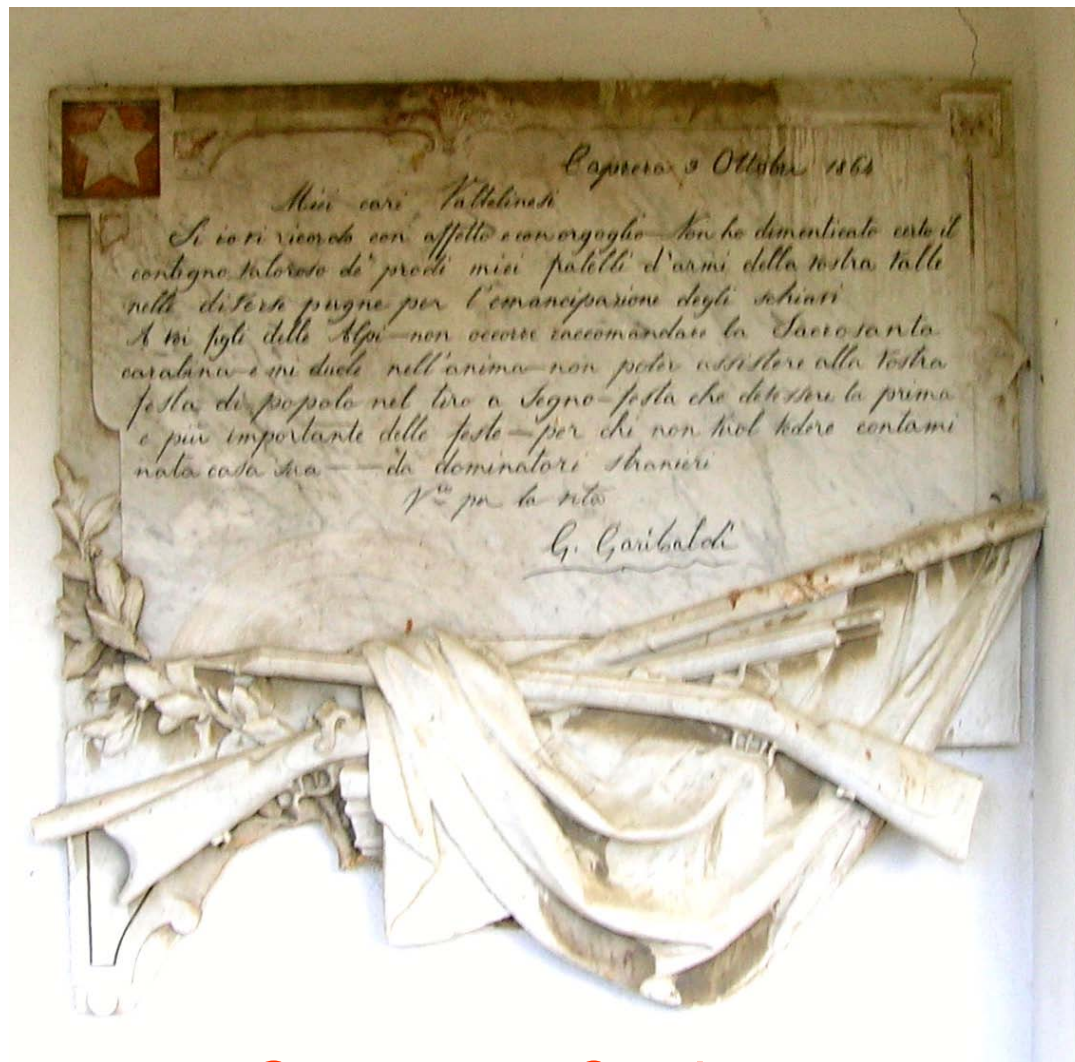 Caprera 9 Ottobre 1864
Miei cari Valtelinesi
Si io vi ricordo con affetto e con orgoglio — Non ho dimenticato certo il
contegno valoroso de' prodi miei fratelli d'armi della vostra Valle
nelle diverse pugne per l'emancipazione degli schiavi
A voi figli delle Alpi — non occorre raccomandare la Sacrosanta
carabina — e mi duole nell'anima — non poter assistere alla Vostra
festa di popolo nel tiro a Segno — festa che dev'essere la prima
e più importante delle feste — per chi non vuol vedere contami
nata casa sua — da dominatori stranieri
V.º per la vita
G. Garibaldi